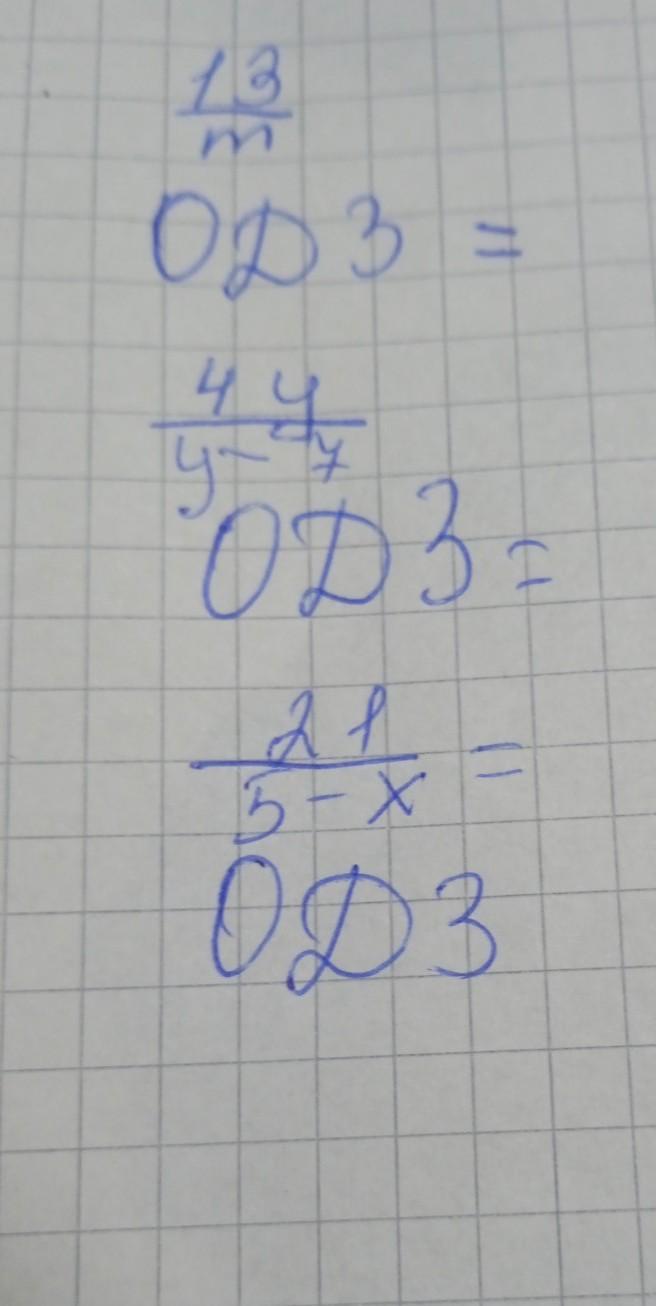 13
m
ОДЗ =
4 y
y - 7
ОДЗ =
21
5 - x =
ОДЗ